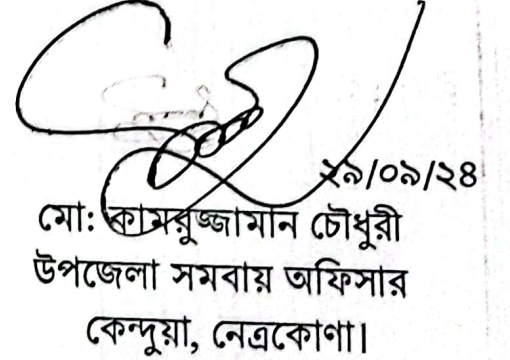 ২৯/০৯/২৪
মো: কামরুজ্জামান চৌধুরী
উপজেলা সমবায় অফিসার
কেন্দুয়া, নেত্রকোণা।